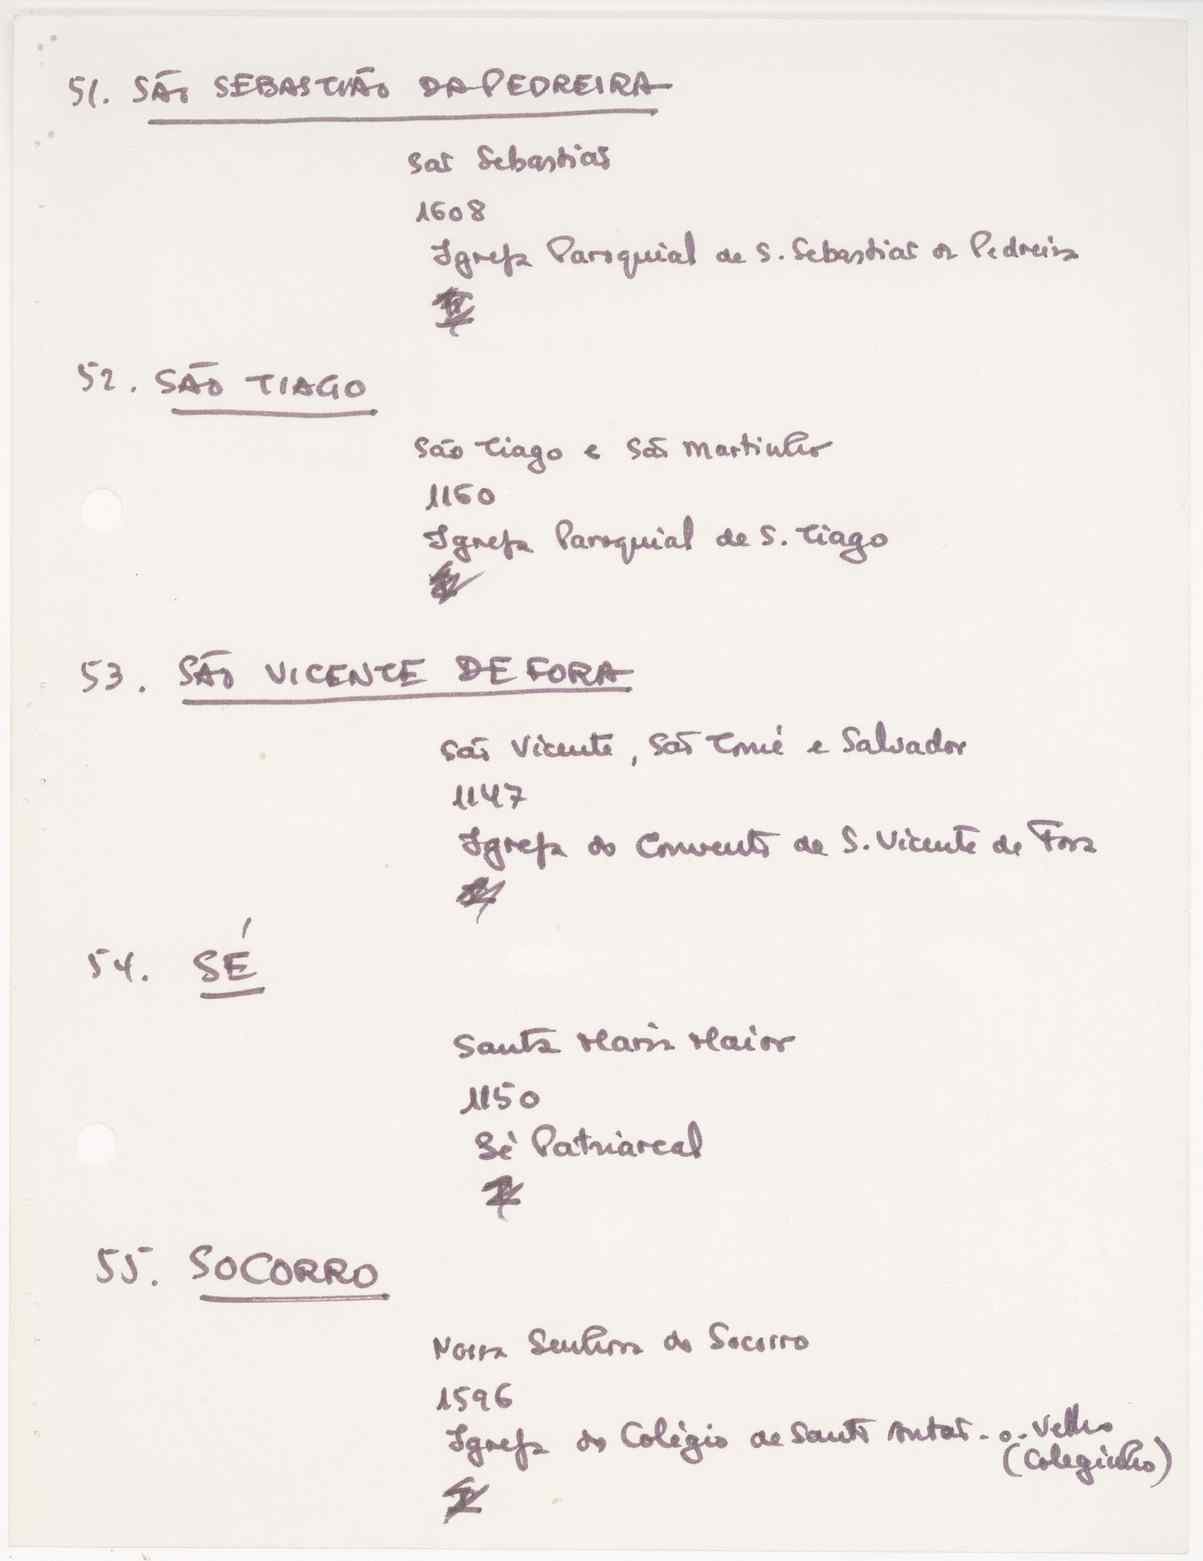 51. SÃO SEBASTIÃO DA PEDREIRA
São Sebastião
1608
Igreja Paroquial de S. Sebastião da Pedreira
52. SÃO TIAGO
São Tiago e São Martinho
1160
Igreja Paroquial de S. Tiago
53. SÃO VICENTE DE FORA
São Vicente, São Tomé e Salvador
1147
Igreja do Convento de S. Vicente de Fora
54. SÉ
Santa Maria Maior
1150
Sé Patriarcal
55. SOCORRO
Nossa Senhora do Socorro
1596
Igreja do Colégio de Santo Antão-o-Velho
(Coleginho)